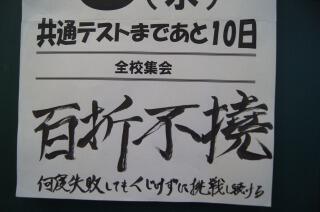 (水)
共通テストまであと10日
全校集会
百折不撓
何度失敗してもくじけずに挑戦し続ける